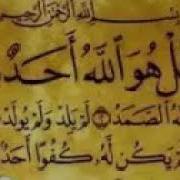 بِسْمِ اللَّهِ الرَّحْمٰنِ الرَّحِيمِ
قُلْ هُوَ اللَّهُ أَحَدٌ
اللَّهُ الصَّمَدُ لَمْ يَلِدْ وَلَمْ يُولَدْ
وَلَمْ يَكُن لَّهُ كُفُوًا أَحَدٌ